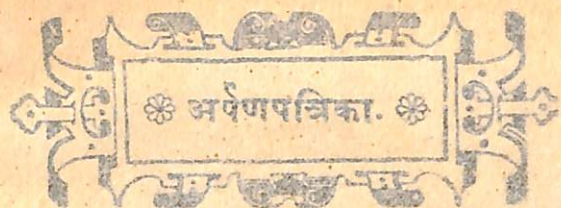 अर्पणपत्रिका.